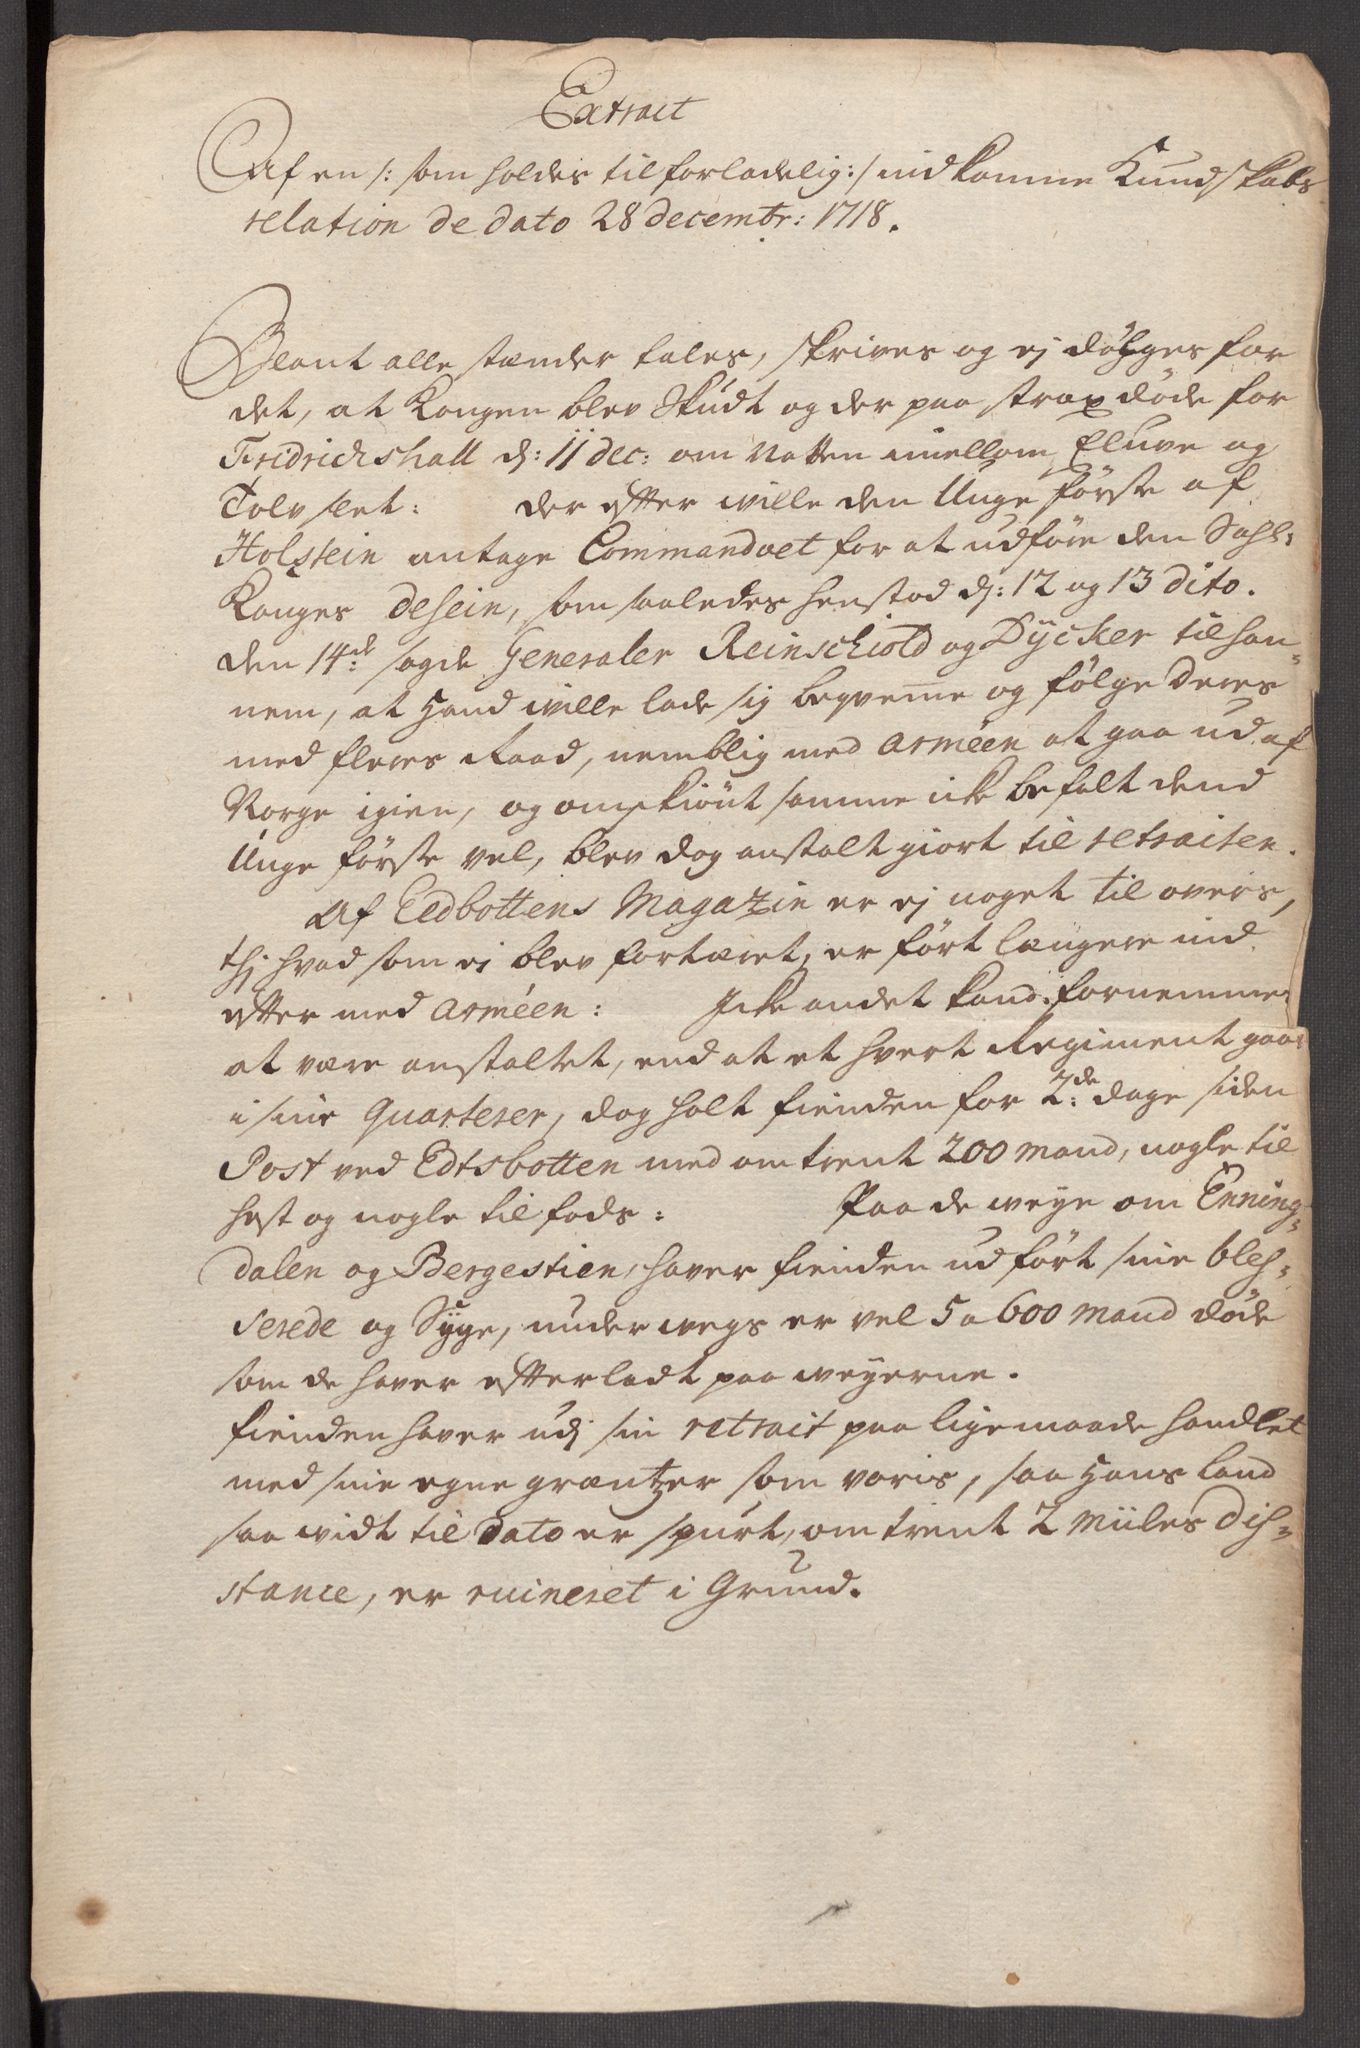 Extract
Af en /: som holdes til forladelig :/ indkomne Kundskabs
relation de dato 28 decembr: 1718.
Blant alle stænder tales, skrives og ej dølges for
det, at Kongen blev Skudt og der paa strax døde for
Fridrichshall d: 11 dec: om Natten imellom Elluve og
Tolv slet: der effter wille den Unge første af
Holstein antage Commandoet for at udføre den Sahl:
Konges desein, som saaledes henstod d: 12 og 13 dito.
den 14de sagde Generaler Reinschiold og Dÿcker til han-
nem, at Hand wille lade sig beqvemme og følge deres
med fleres Raad, nemblig med arméen at gaa ud af
Norge igien, og omskiønt samme icke befalt dend
Unge første vel, blev dog anstalt giort til retraiten.
Af Eedbottens Magazin er ej noget til overs,
thj hvad som ej blev fortæret, er ført længere ind
effter med arméen: Icke andet kand fornemmes
at være anstaltet, end at et hvert Regiment gaar
i sine quarterer, dog holt fienden for 2de dage siden
Post ved Edtsbotten med omtrent 200 mand, nogle til
hest og nogle til fods: Paa de weye om Enning-
dalen og Bergestien, haver fienden udført sine bles-
serede og Syge, underwegs er vel 5 a 600 mand døde
som de haver effterladt paa weyerne.
fienden haver udj sin retrait paa lige maade handlet
med sine egne græntzer som voris, saa Hans land
saa widt til dato er spurt, omtrent 2 miiles dis-
stance, er ruineret i Grund.